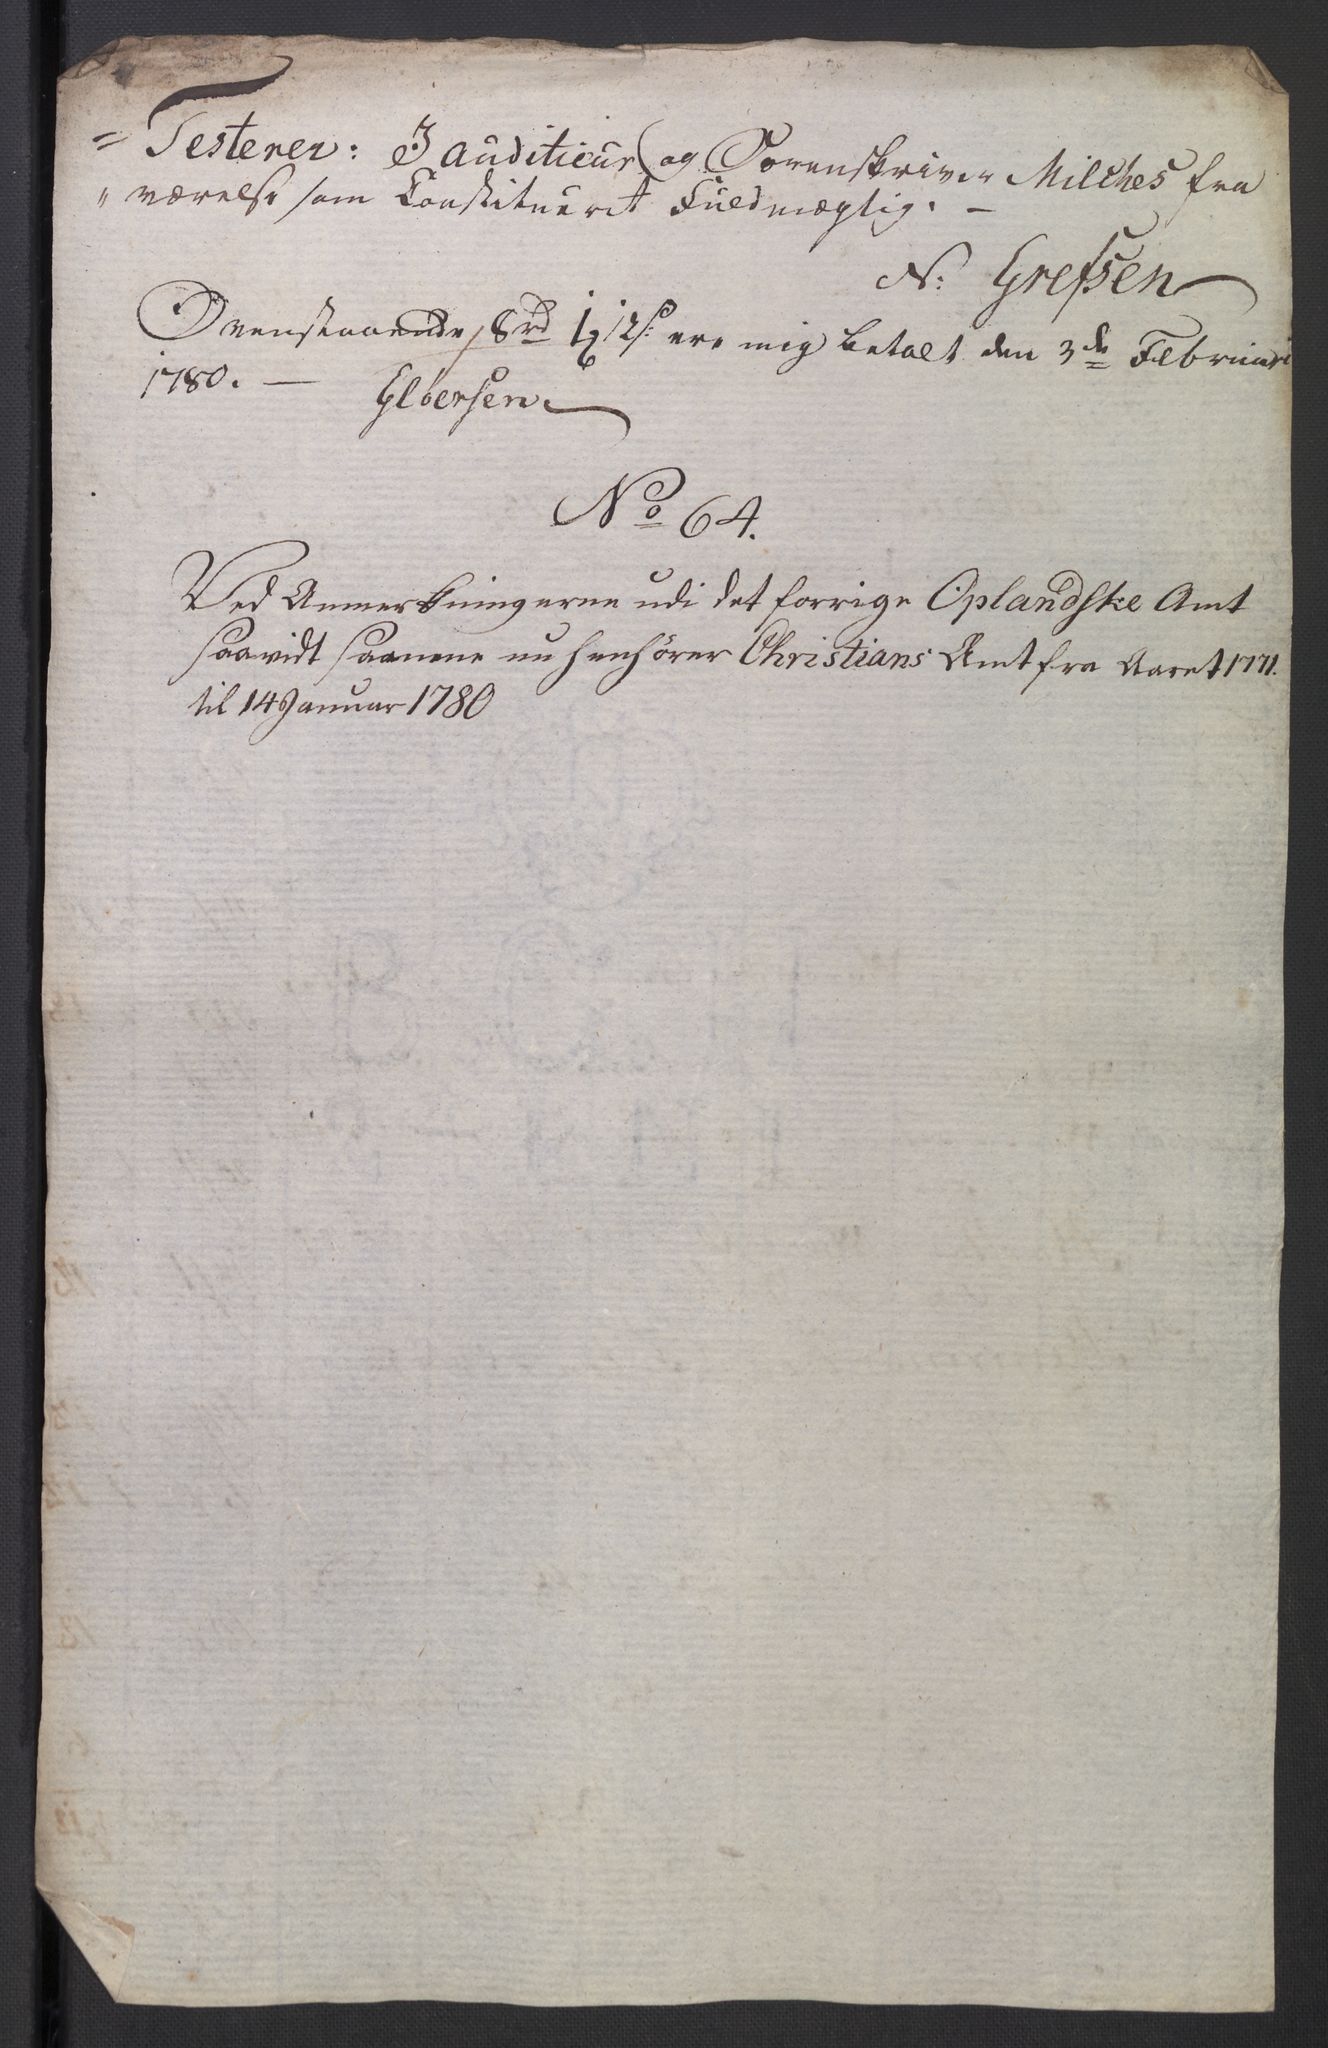 = Testerer: I auditieur og Sorenskriver Milches fra
" værelse som Constitueret Fuldmægtig. —
N: Grefsen
Ovenstaaende 8 rd 1 12 s: ere mig betalt den 3de Februari
1780. — Gloersen.
No 64.
Ved Anmerkningerne udi det forrige Oplandske Amt
saavidt samme nu henhører Christians Amt fra Aaret 1771.
til 14 Januar 1780